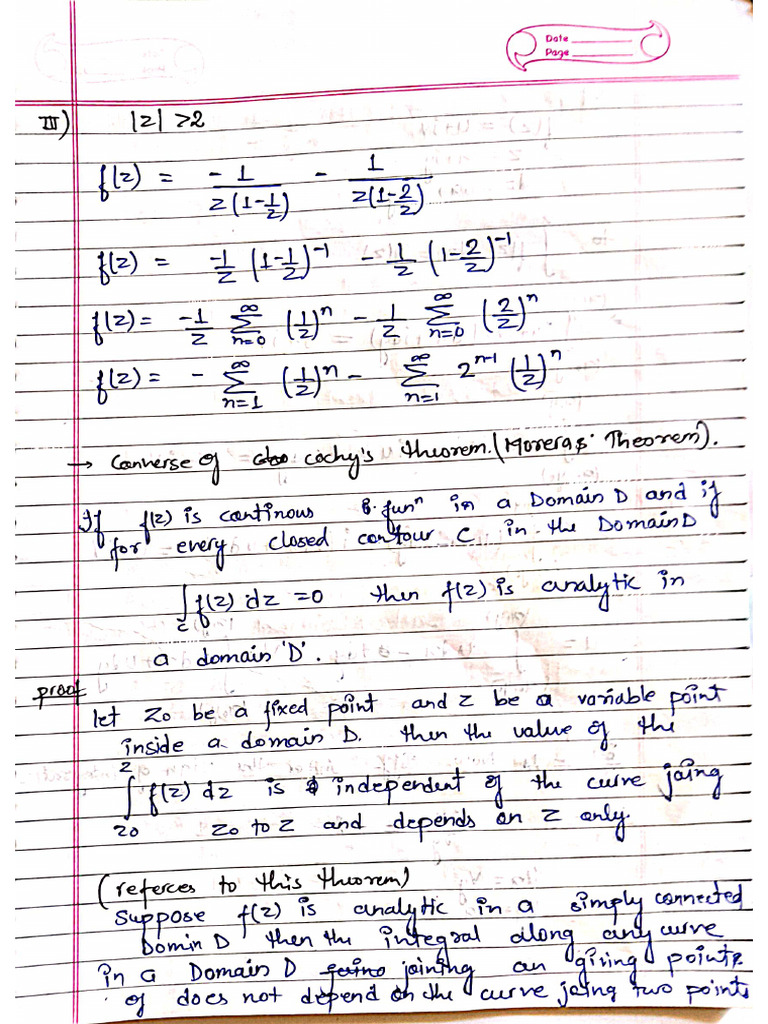 Date
Page
III) |z| > 2
f(z) = -1/z(1-1/z) - 1/z(1-2/z)
f(z) = -1/z (1-1/z)^-1 - 1/z (1-2/z)^-1
f(z) = -1/z ∑_{n=0}^{∞} (1/z)^n - 1/z ∑_{n=0}^{∞} (2/z)^n
f(z) = - ∑_{n=1}^{∞} (1/z)^n - ∑_{n=1}^{∞} 2^{n-1} (1/z)^n
→ Converse of cochy's theorem. (Moreras Theorem).
If f(z) is continous fun^n in a Domain D and if
for every closed contour C in the Domain D
∫_c f(z) dz = 0 then f(z) is analytic in
a domain 'D'.
proof
let Zo be a fixed point and z be a variable point
inside a domain D. then the value of the
∫_{zo}^{z} f(z) dz is independent of the curve joing
zo to z and depends on z only.
(referces to this theorem)
Suppose f(z) is analytic in a simply connected
Domin D then the integral along any curve
in a Domain D joining an giving points
of does not depend on the curve joing two points